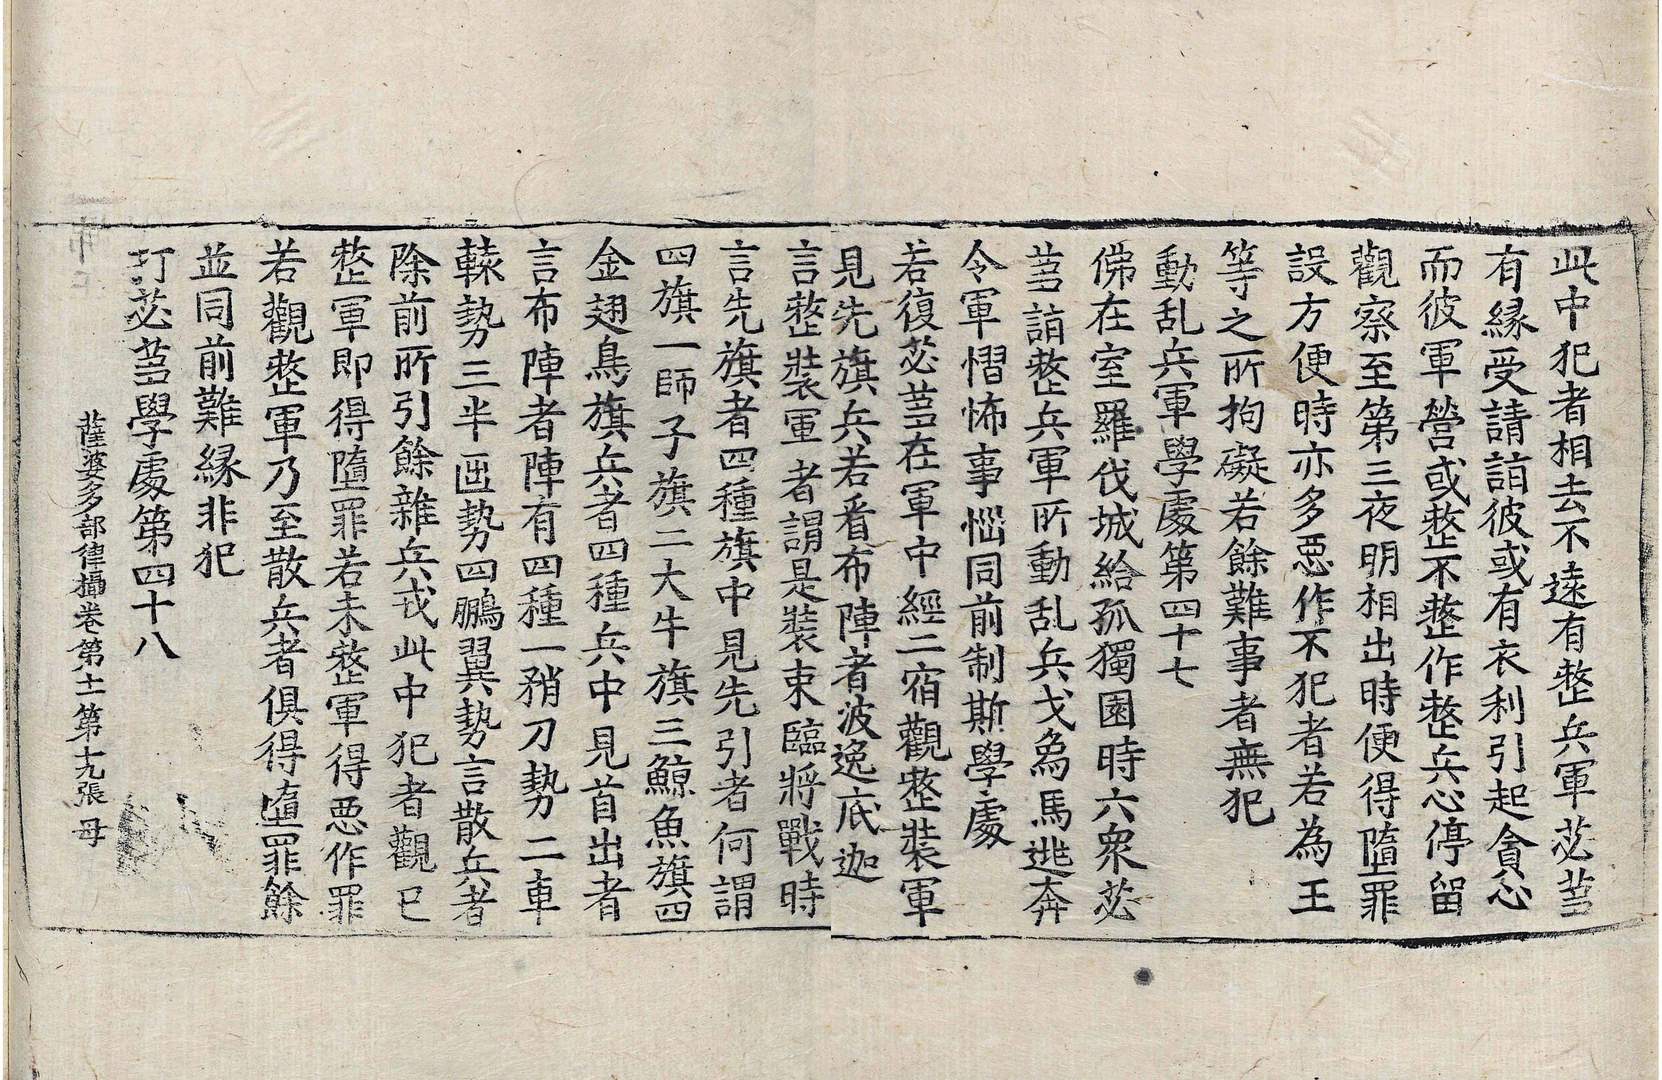 此中犯者相去不遠有整兵軍苾芻
有縁受請詣彼或有衣利引起貪心
而彼軍營或整不整作整兵心停留
觀察至第三夜明相出時便得墮罪
設方便時亦多惡作不犯者若為王
等之所拘礙若餘難事者無犯
動乱兵軍學處第四十七
佛在室羅伐城給孤獨園時六衆苾
芻詣整兵軍所動乱兵戈象馬逃奔
令軍慴怖事惱同前制斯學處
若復苾芻在軍中經二宿觀整裝軍
見先旗兵若看布陣者波逸底迦
言整裝軍者謂是裝束臨將戰時
言先旗者四種旗中見先引者何謂
四旗一師子旗二大牛旗三鯨魚旗四
金翅鳥旗兵者四種兵中見首出者
言布陣者陣有四種一矟刀勢二車
轅勢三半𠥱勢四鵬翼勢言散兵者
除前所引餘雜兵戎此中犯者觀已
整軍即得墮罪若未整軍得惡作罪
若觀整軍乃至散兵者俱得墮罪餘
並同前難縁非犯
打苾芻學處第四十八
薩婆多部律攝卷第十一 第十九張 母